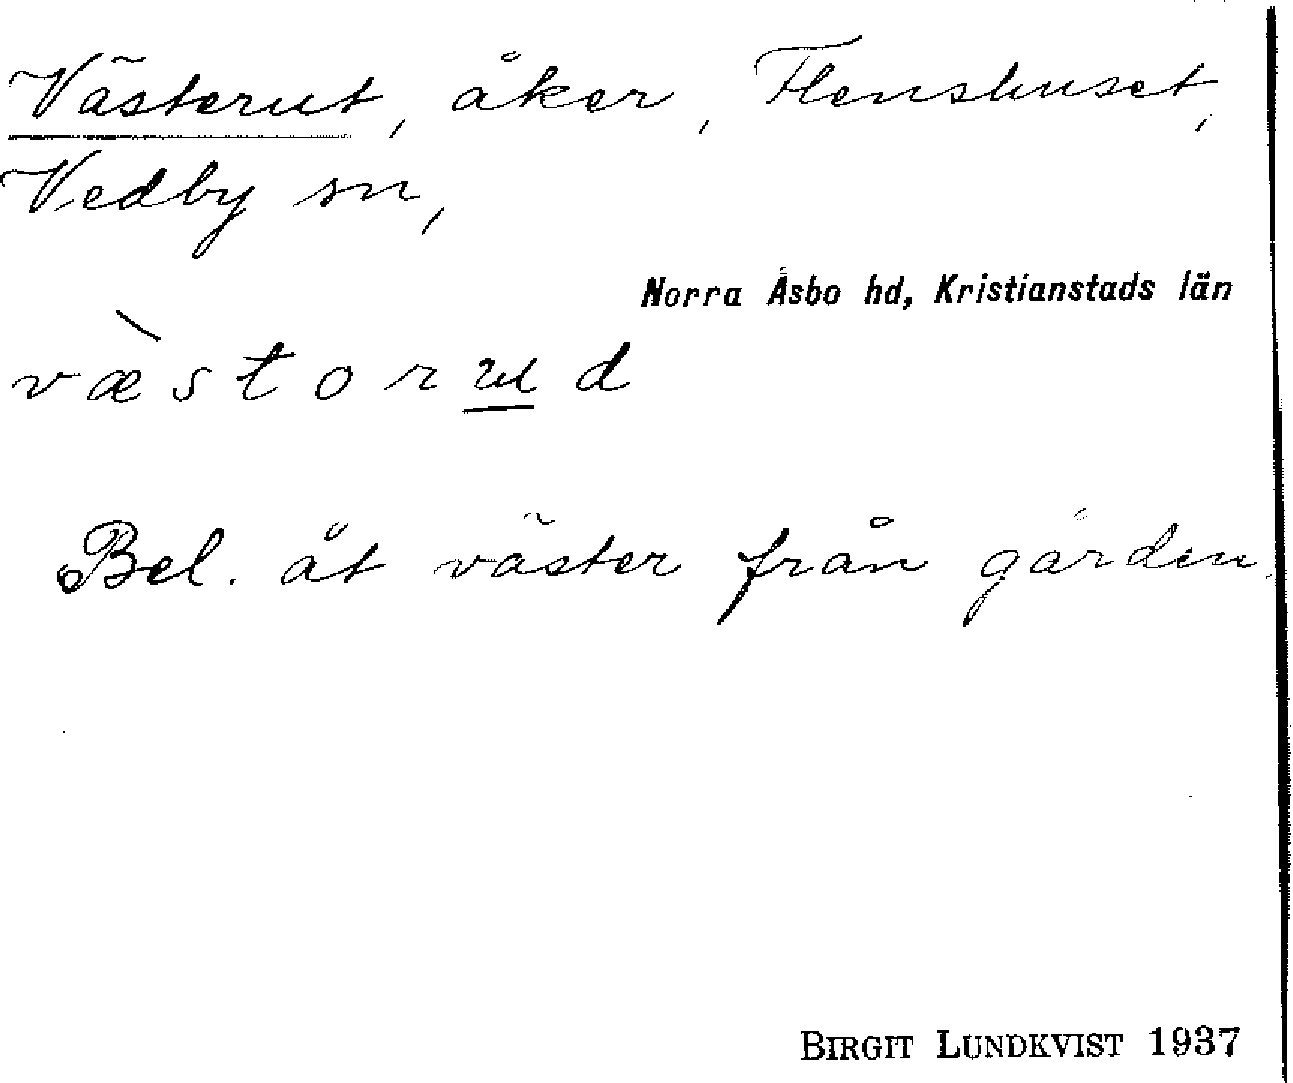 Västerut, åker, Flenshuset,
Vedby sn,
Norra Åsbo hd, Kristianstads län
væ̀storu̲d
Bel. åt väster från gården.
BIRGIT LUNDKVIST 1937